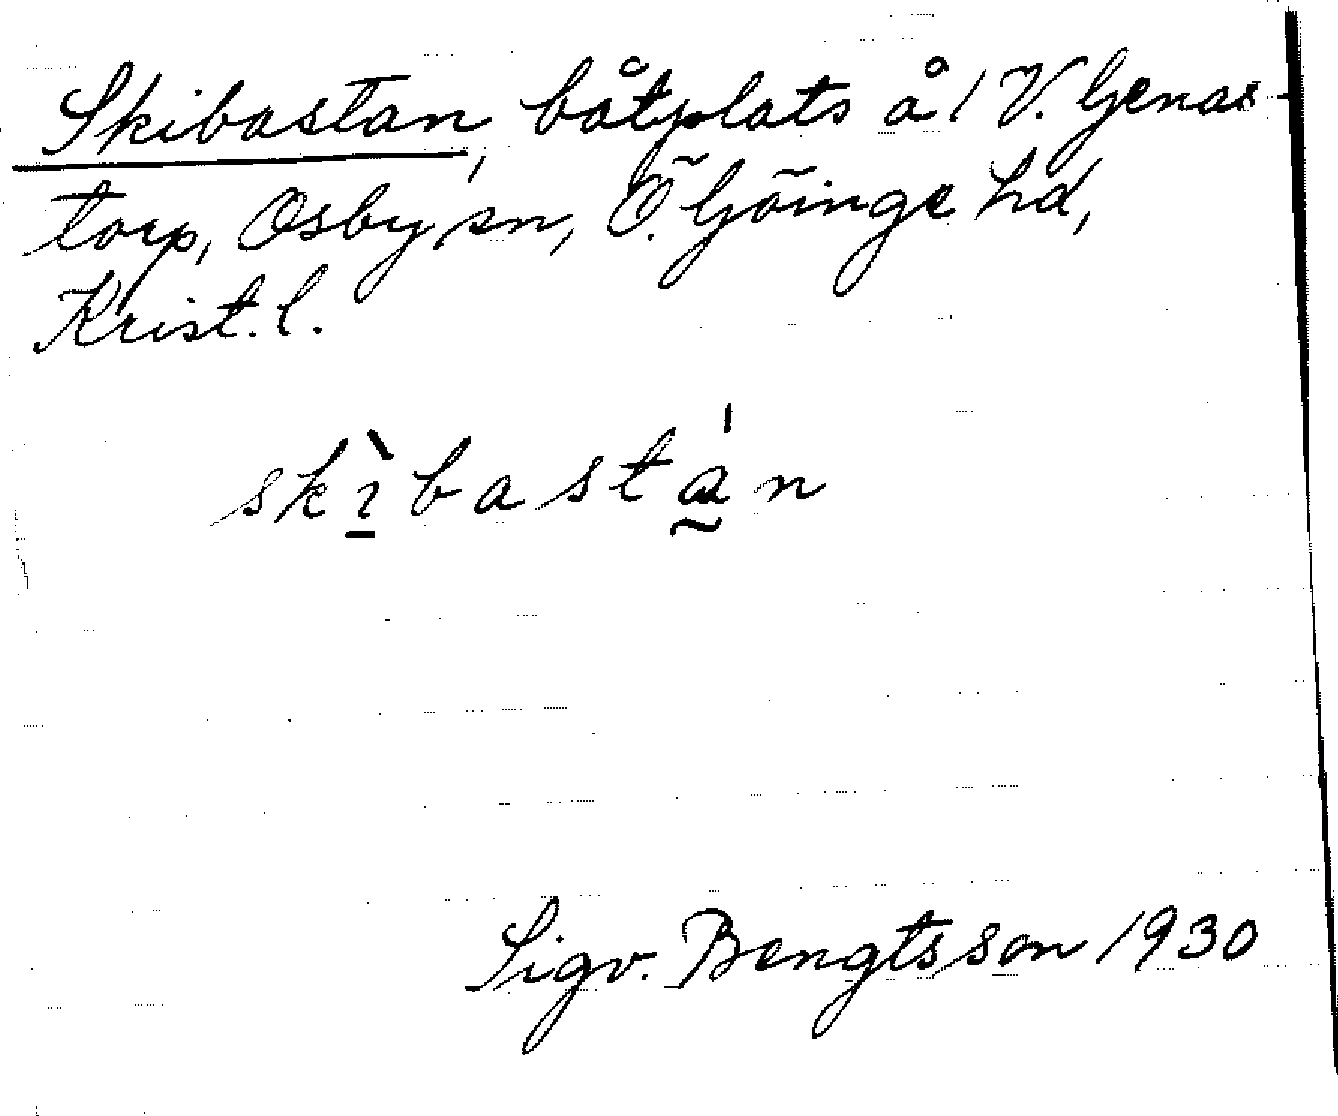 Skibastan, båtplats å 1 V. Genas-
torp, Osby sn, Ö. Göinge hd,
Krist. l.
skìbastán
Sigv. Bengtsson 1930